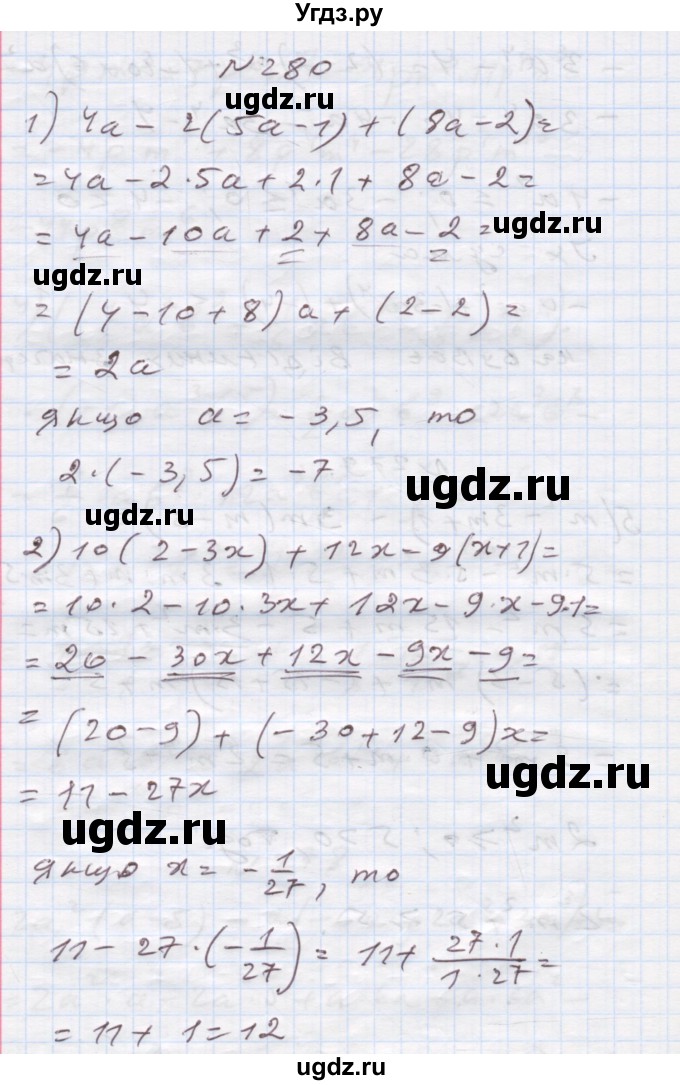 Угдз.ру
№280
ugdz.ru
1) 4a - 2(5a-1) + (8a-2)=
= 4a - 2·5a + 2·1 + 8a - 2 =
= 4a - 10a + 2 + 8a - 2 =
ugdz.ru
ugdz.ru
= (4-10+8)a + (2-2) =
= 2a
якщо a = -3,5, то
2·(-3,5) = -7
ugdz.ru
ugdz.ru
2) 10(2-3x) + 12x - 9(x+1)=
= 10·2 - 10·3x + 12x - 9·x - 9·1=
= 20 - 30x + 12x - 9x - 9=
= (20-9) + (-30+12-9)x=
ugdz.ru
= 11 - 27x
ugdz.ru
якщо x = -1/27, то
11 - 27·(-1/27) = 11 + 27·1/1·27 =
= 11 + 1 = 12
ugdz.ru